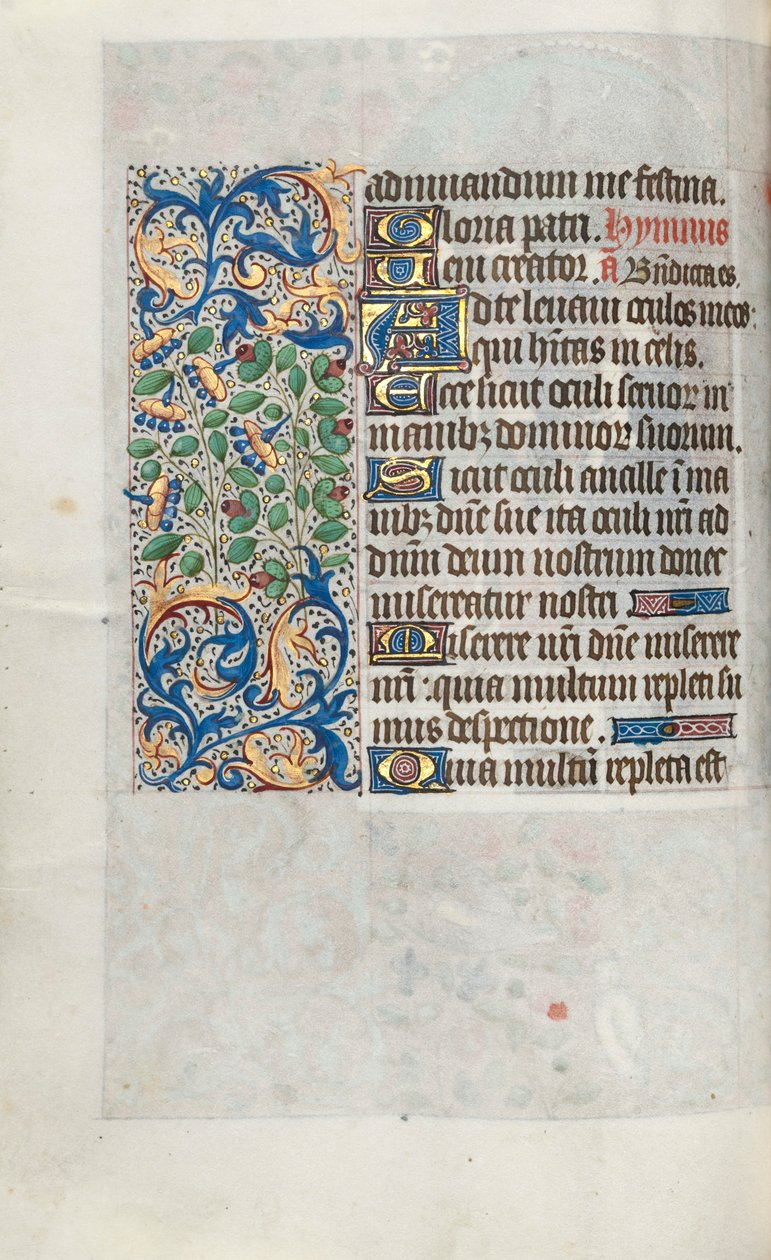 adiuuandum me festina.
Gloria patri. Hymnus
Ueni creator. a͞ Bn̄dicta es.
Ad te leuaui oculos meos:
qui hītas in celis.
Ecce sicut oculi seruor in
manibꝫ dominoꝝ suorum.
Sicut oculi ancille ī ma
nibꝫ dn̄e sue ita oculi nr̄i ad
dn̄m deum nostrum donec
misereatur nostri
Miserere nr̄i dn̄e miserere
nr̄i · quia multum repleti su
mus despectione.
Quia multū repleta est